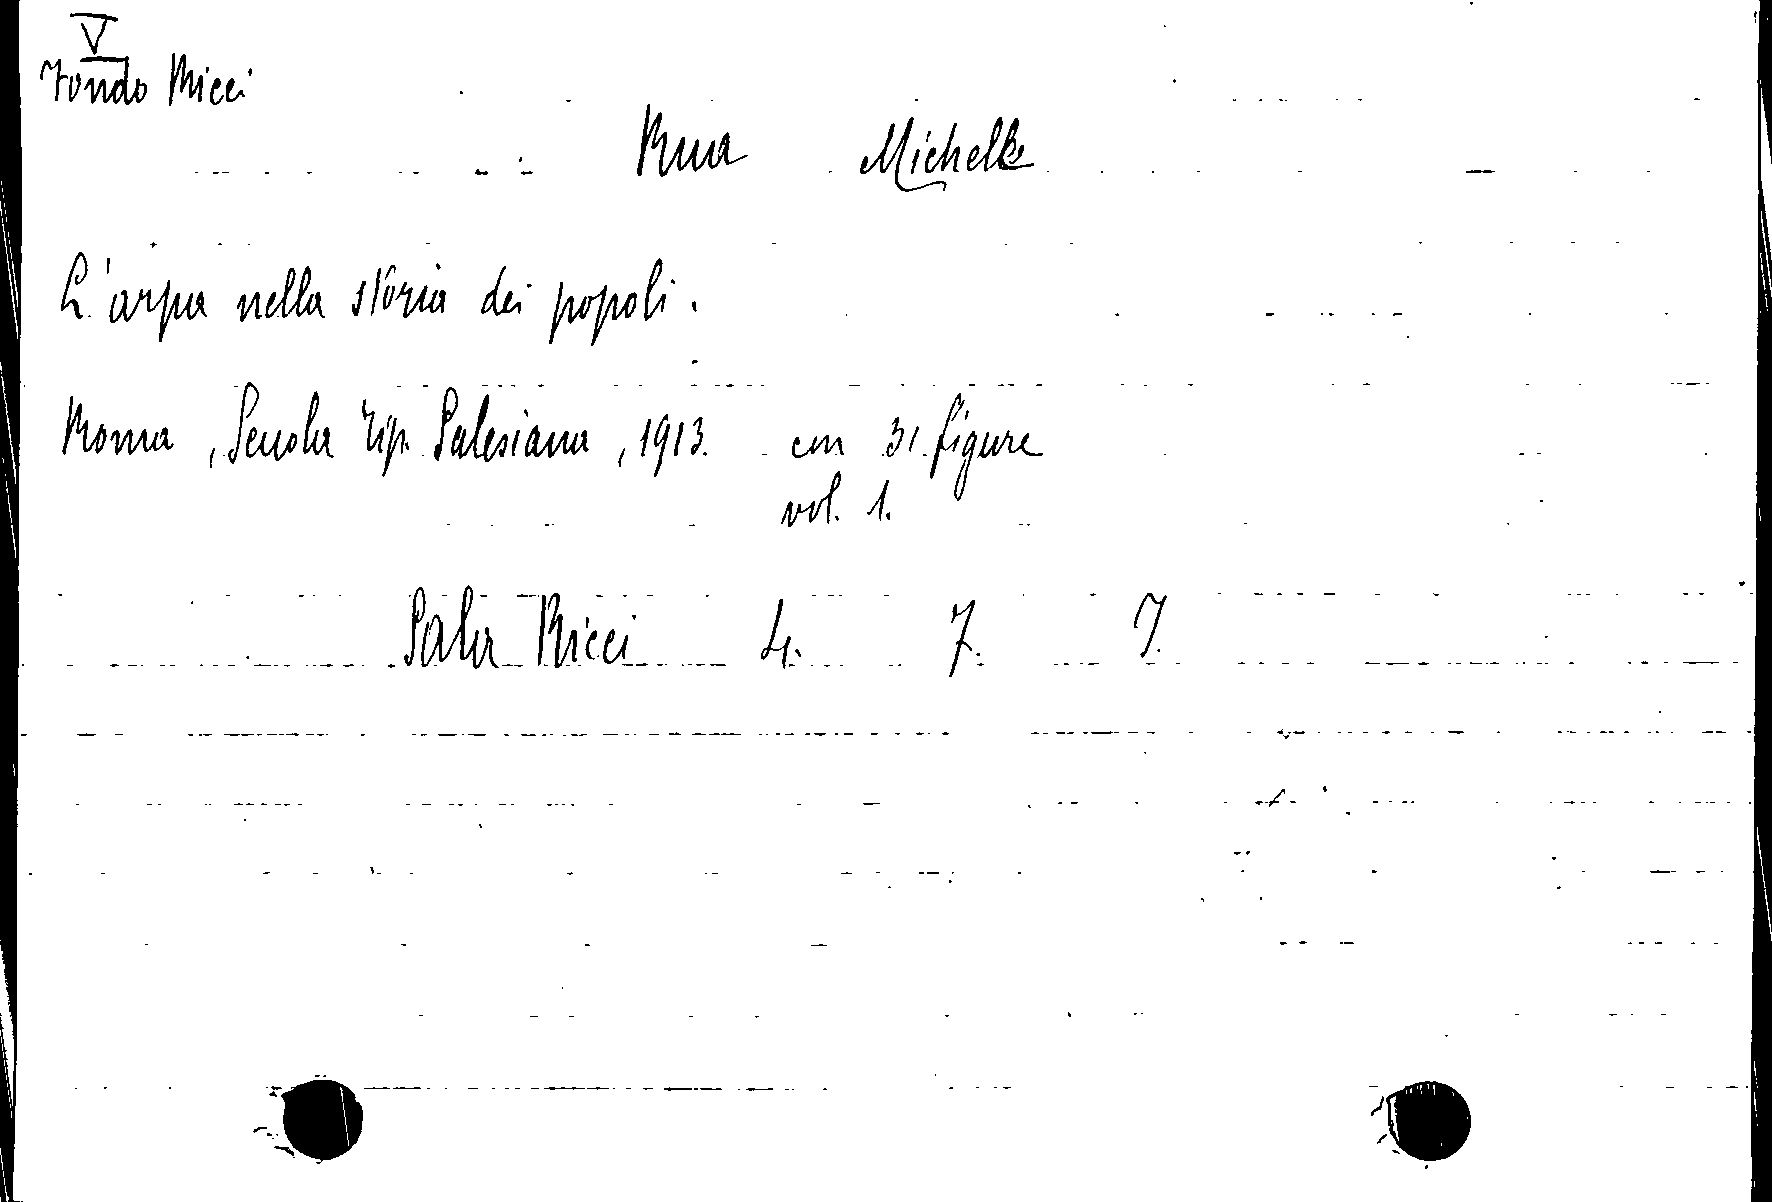 V
Fondo Ricci
Rua Michele
L'arpa nella storia dei popoli.
Roma, Scuola Tip. Salesiana, 1913. con 31 figure
vol. 1.
Sala Ricci 4. 7. 7.